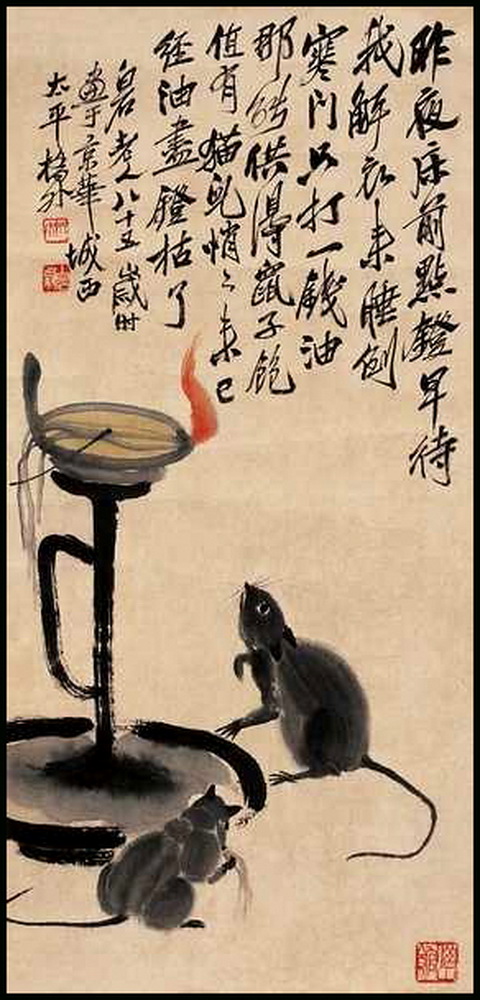 昨夜床前點鐙早待
我解衣来睡倒
寒門只打一錢油
那能供得鼠子飽
值有猫兒悄〻来已
經油盡鐙枯了
白石老人八十五歲時
畫于京華城西
太平橋外